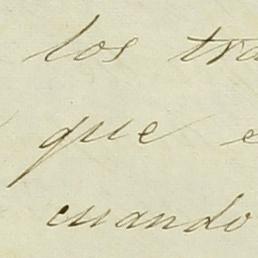 los tra
que e
cuando